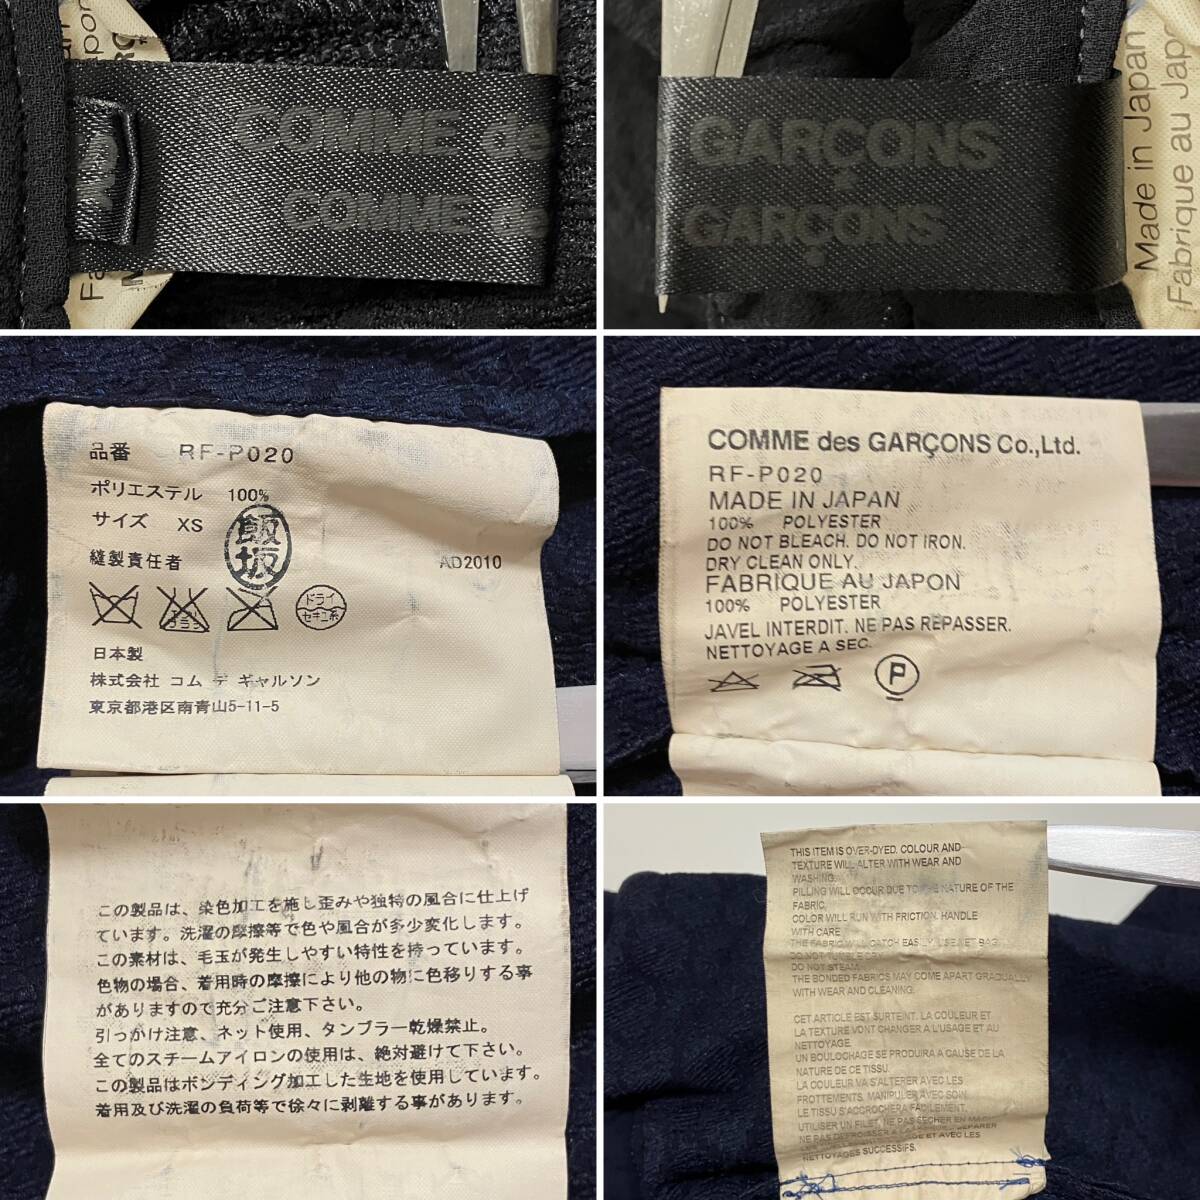 COMME de
COMME de
GARÇONS
GARÇONS
Made in Japan
Fabrique au Japo
品番 RF-P020
ポリエステル 100%
サイズ XS
飯坂
縫製責任者
AD2010
ドライ
セキユ系
日本製
株式会社 コム デ ギャルソン
東京都港区南青山5-11-5
COMME des GARÇONS Co.,Ltd.
RF-P020
MADE IN JAPAN
100% POLYESTER
DO NOT BLEACH. DO NOT IRON.
DRY CLEAN ONLY.
FABRIQUE AU JAPON
100% POLYESTER
JAVEL INTERDIT. NE PAS REPASSER.
NETTOYAGE A SEC.
P
この製品は、染色加工を施し歪みや独特の風合に仕上げ
ています。洗濯の摩擦等で色や風合が多少変化します。
この素材は、毛玉が発生しやすい特性を持っています。
色物の場合、着用時の摩擦により他の物に色移りする事
がありますので充分ご注意下さい。
引っかけ注意、ネット使用、タンブラー乾燥禁止。
全てのスチームアイロンの使用は、絶対避けて下さい。
この製品はボンディング加工した生地を使用しています。
着用及び洗濯の負荷等で徐々に剥離する事があります。
THIS ITEM IS OVER-DYED. COLOUR AND
TEXTURE WILL ALTER WITH WEAR AND
WASHING.
PILLING WILL OCCUR DUE TO THE NATURE OF THE
FABRIC.
COLOR WILL RUN WITH FRICTION. HANDLE
WITH CARE
THE FABRIC WILL CATCH EASILY. USE NET BAG.
DO NOT TUMBLE DRY.
DO NOT STEAM.
THE BONDED FABRICS MAY COME APART GRADUALLY
WITH WEAR AND CLEANING.
CET ARTICLE EST SURTEINT. LA COULEUR ET
LA TEXTURE VONT CHANGER A L'USAGE ET AU
NETTOYAGE.
UN BOULOCHAGE SE PRODUIRA A CAUSE DE LA
NATURE DE CE TISSU.
LA COULEUR VA S'ALTERER AVEC LES
FROTTEMENTS. MANIPULER AVEC SOIN.
LE TISSU S'ACCROCHERA FACILEMENT.
UTILISER UN FILET. NE PAS SECHER EN
NE PAS
ET AVEC LES
NETTOYAGES SUCCESSIFS.